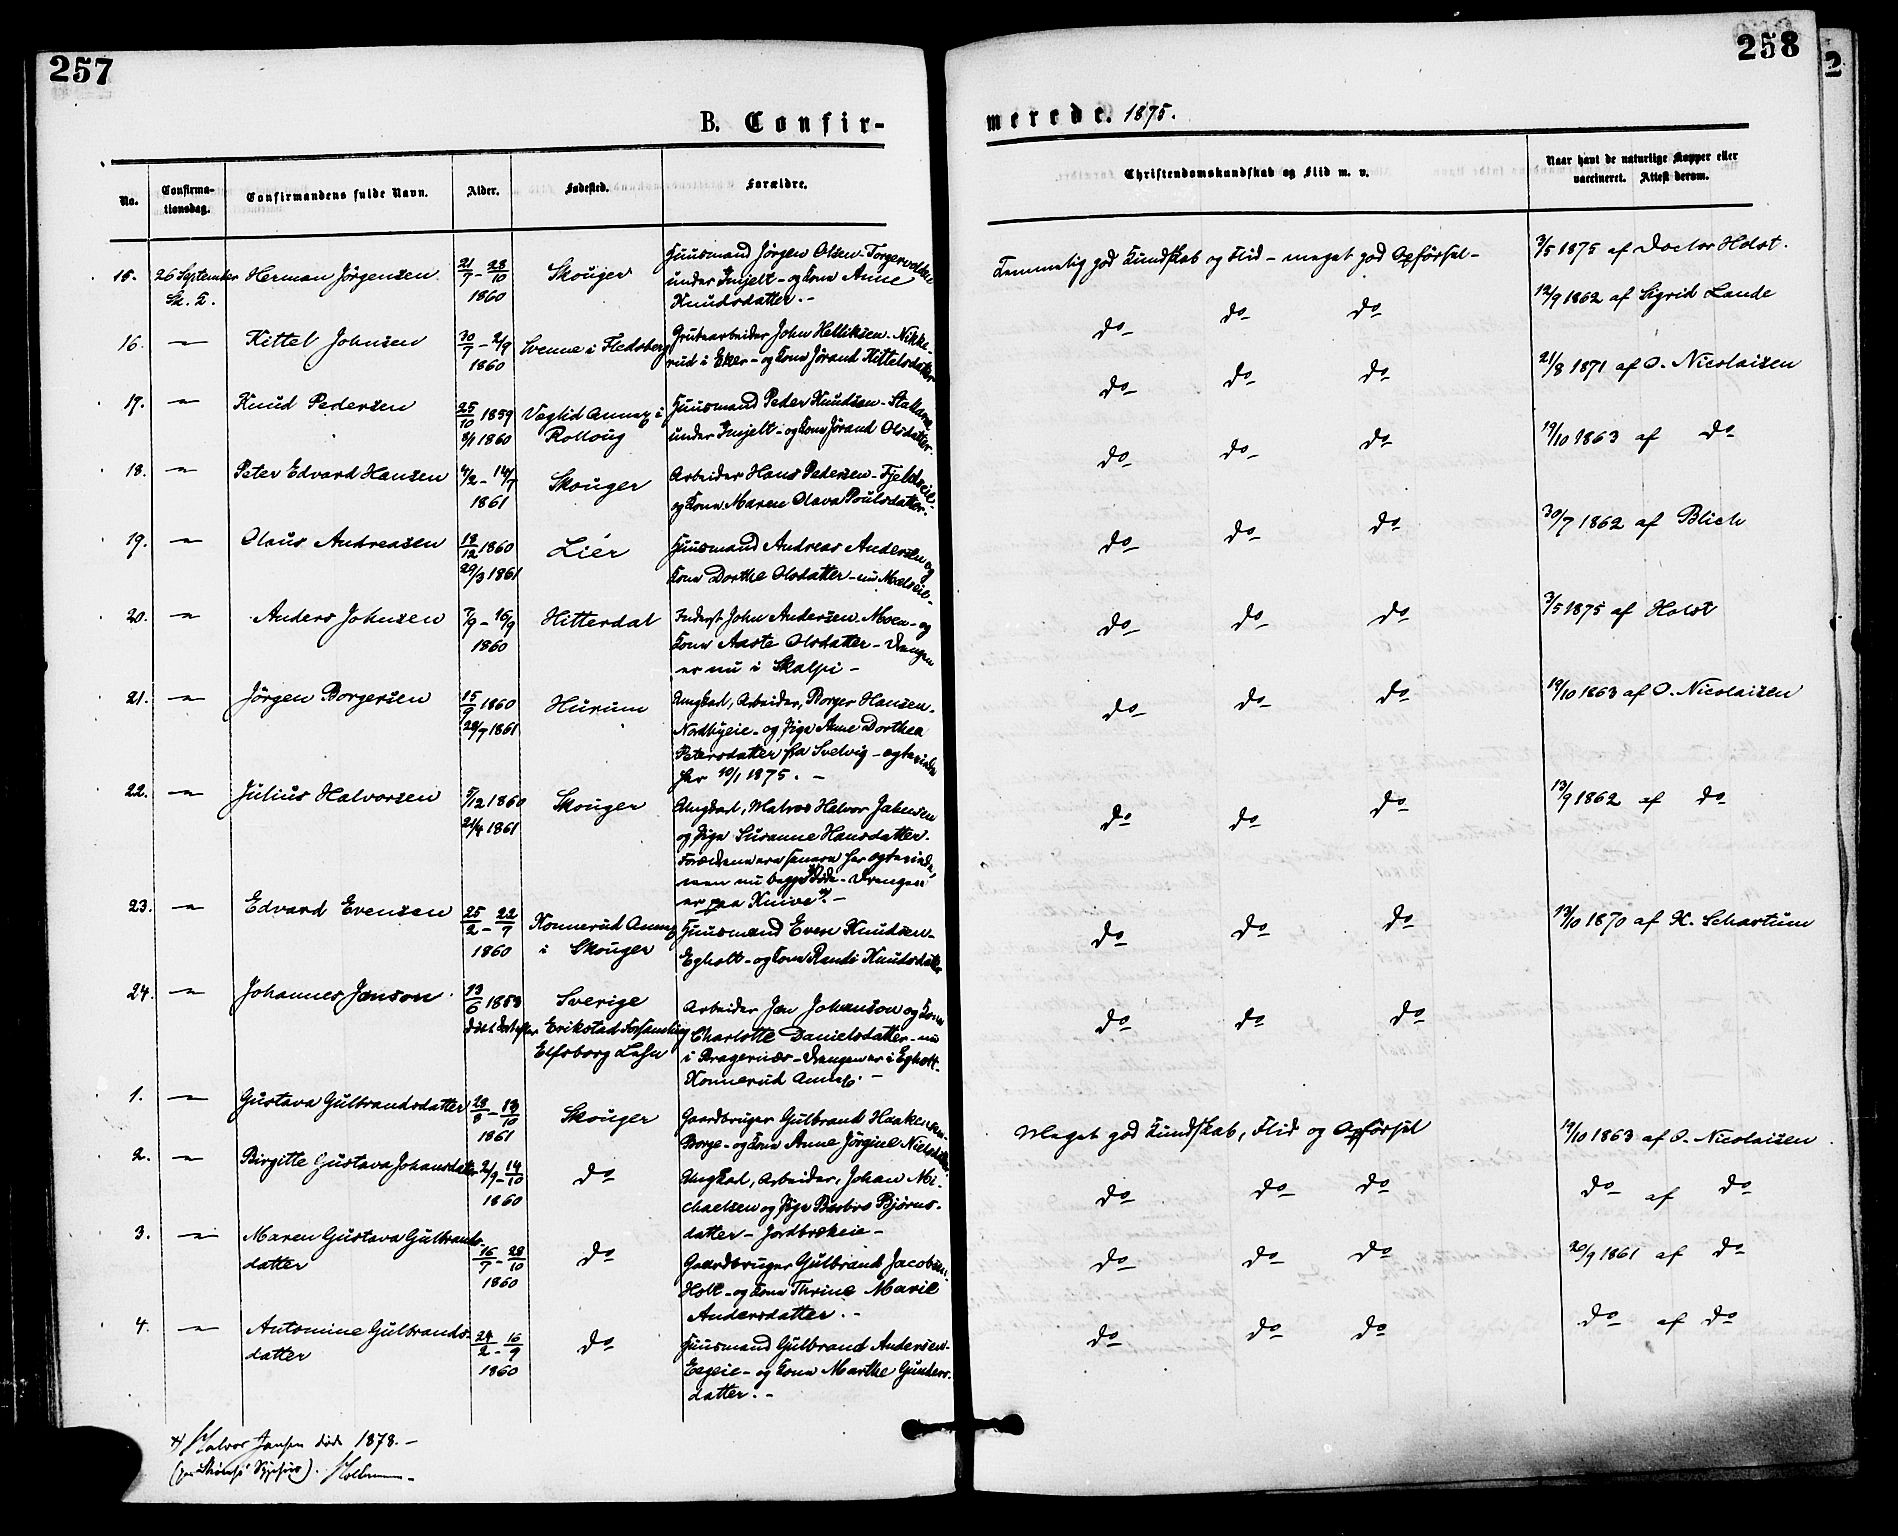 257
B. Confir-
No.
Confirma-
tionsdag.
Confirmandens fulde Navn.
Alder.
Fødested.
Forældre.
15. 26 September Herman Jørgensen 21/7 - 28/10 1860 Skouger
Huusmand Jørgen Olsen
under Imjelt - og Kone Anne
Knudsdatter. -
16. -"- Kittel Johnsen 30/7 - 2/9 1860 Svenne i Flesberg
Grubearbeider John Helliksen - Nikke-
rud i Eker - og Kone Jørand Kittelsdatter
17. -"- Knud Pedersen 25/10 1859 8/1 1860 Veglid Annex i Rolloug
Huusmand Peder Knudsen
under Imjelt - og Kone Jørand Olsdatter
18. -"- Peter Edvard Hansen 4/2 - 14/7 1861 Skouger
Arbeider Hans Pedersen
og Kone Maren Olava Poulsdatter.
19. -"- Olaus Andreasen 13/12 1860 29/3 1861 Lier
Huusmand Andreas Andersen og
Kone Dorthe Olsdatter - nu
20. -"- Anders Johnsen 7/9 - 16/9 1860 Hitterdal
Inderst John Andersen Moen - og
Kone Aaste Olsdatter - Drengen
er nu i Skalpi -
21. -"- Jørgen Borgersen 15/9 1860 28/7 1861 Hurum
Ungkarl, Arbeider, Borger Hansen
Nordbyeie - og Pige Anne Dorthea
Petersdatter fra Svelvig - egteviede
her 10/1 1875. -
22. -"- Julius Halvorsen 5/12 1860 21/4 1861 Skouger
Ungkarl, Matros Halvor Jahnsen
og Pige Susanne Hansdatter.
Forældrene ere senere her egteviede,
men nu begge døde - Drengen
er paa Knive x). -
23. -"- Edvard Evensen 25/2 - 22/7 1860 Konnerud Annex i Skouger
Huusmand Even Knudsen -
Egholt - og Kone Randi Knudsdatter
24. -"- Johannes Janson 13/6 1853 Sverige
Erikstad Forsamling
Elfsborg Lehn
Arbeider Jan Johanson og Kone
Charlotte Danielsdatter - nu
i Bragernæs - Drengen er i Egholt -
Konnerud Annex. -
1. -"- Gustava Gulbrandsdatter 1861 Skouger
Gaardbruger Gulbrand Haakensen
Borge - og Kone Anne Jørgine Nielsdatter
2. -"- Birgitte Gustava Johansdatter 2/9 - 14/10 1860 do
Ungkarl, Arbeider, Johan Mi-
chaelsen og Pige Barbro Bjørns-
datter - Jordbrekeie -
3. -"- Maren Gustava Gulbrands-
datter 16/7 - 28/10 1860 do
Gaardbruger Gulbrand Jacobsen
Holt - og Kone Thrine Marie
Andersdatter. -
4. -"- Antomine Gulbrands-
datter 24/2 - 16/9 1860 do
Huusmand Gulbrand Andersen -
Eegeie - og Kone Marthe Gunders-
datter. -
x) Halvor Jansen døde 1878. -
258
merede. 1875.
Christendomskundskab og Flid m. v.
Naar havt de naturlige Kopper eller
vaccineret. Attest derom.
Temmelig god Kundskab og Flid - meget god Opførsel - 3/5 1875 af Doctor Holst.
do do do 12/9 1862 af Sigrid Lande
do do do 21/8 1871 af O. Nicolaisen
do do do 19/10 1863 af do
do do do 30/7 1862 af Blich
do do do 3/5 1875 af Holst
do do do 19/10 1863 af O. Nicolaisen
do do do 13/9 1862 af do
do do do 13/10 1870 af K. Schartum
do do do
Meget god Kundskab, Flid og Opførsel 19/10 1863 af O. Nicolaisen
do do do do af do
do do do 20/9 1861 af do
do do do do af do